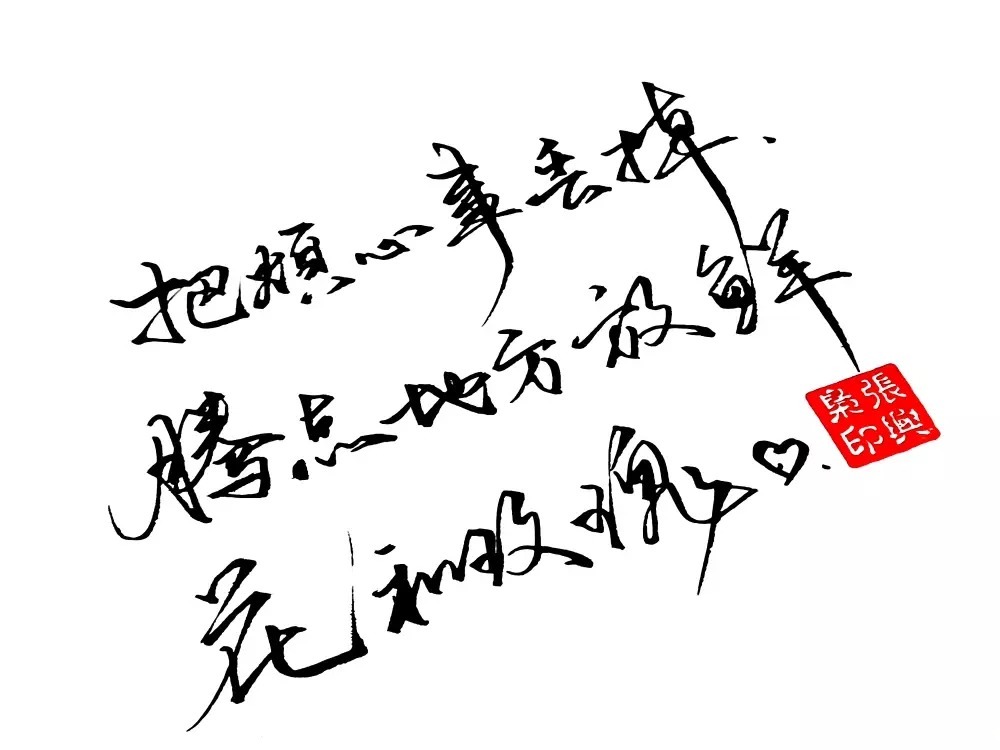 把烦心事丢掉.
腾点地方放鲜
花和♡.
張興
印